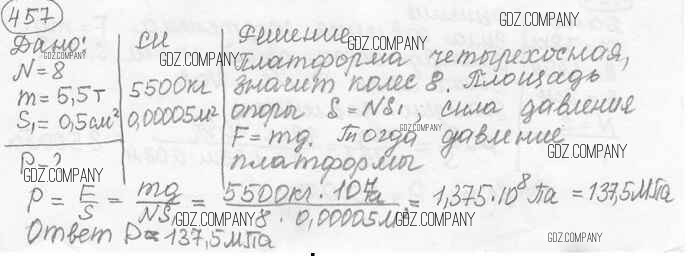 457
Дано:
N = 8
m = 5,5 т
S₁ = 0,5 см²
P - ?
СИ
5500 кг
0,00005 м²
Решение
Платформа четырехосная,
значит колес 8. Площадь
опоры S = NS₁, сила давления
F = mg. Тогда давление
платформы
P = F/S = mg/NS₁ = 5500 кг · 10 / 8 · 0,00005 м² = 1,375·10⁸ Па = 137,5 МПа
Ответ P ≈ 137,5 МПа
GDZ.COMPANY
GDZ.COMPANY
GDZ.COMPANY
GDZ.COMPANY
GDZ.COMPANY
GDZ.COMPANY
GDZ.COMPANY
GDZ.COMPANY
GDZ.COMPANY
GDZ.COMPANY
GDZ.COMPANY